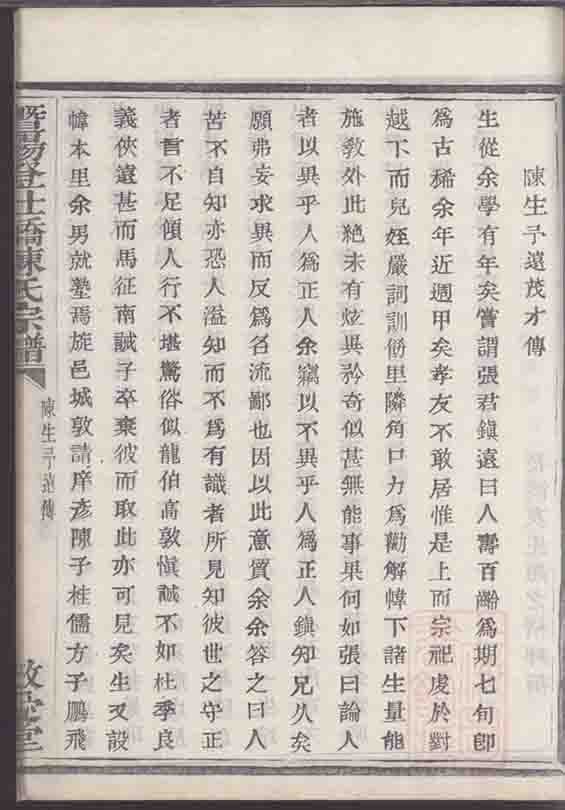 陳生子遠茂才傳
生從余學有年矣嘗謂張君鎮遠曰人壽百齡爲期七旬卽
爲古稀余年近週甲矣孝友不敢居惟是上而宗祀虔於對
越下而兒姪嚴詞訓飭里隣角口力爲勸解幃下諸生量能
施教外此絶未有炫異矜奇似甚無能事果何如張曰論人
者以異乎人爲正人余竊以不異乎人爲正人鎮知兄久矣
願弗妄求異而反爲名流鄙也因以此意質余余答之曰人
苦不自知亦恐人溢知而不爲有識者所見知彼世之守正
者言不足傾人行不堪驚俗似龍伯高敦愼誠不如杜季良
義俠遠甚而馬征南誡子卒棄彼而取此亦可見矣生又設
幃本里余男就塾焉旋邑城敦請庠彥陳子桂儒方子鵬飛
暨陽登仕橋陳氏宗譜
陳生子遠傳
敦睦堂